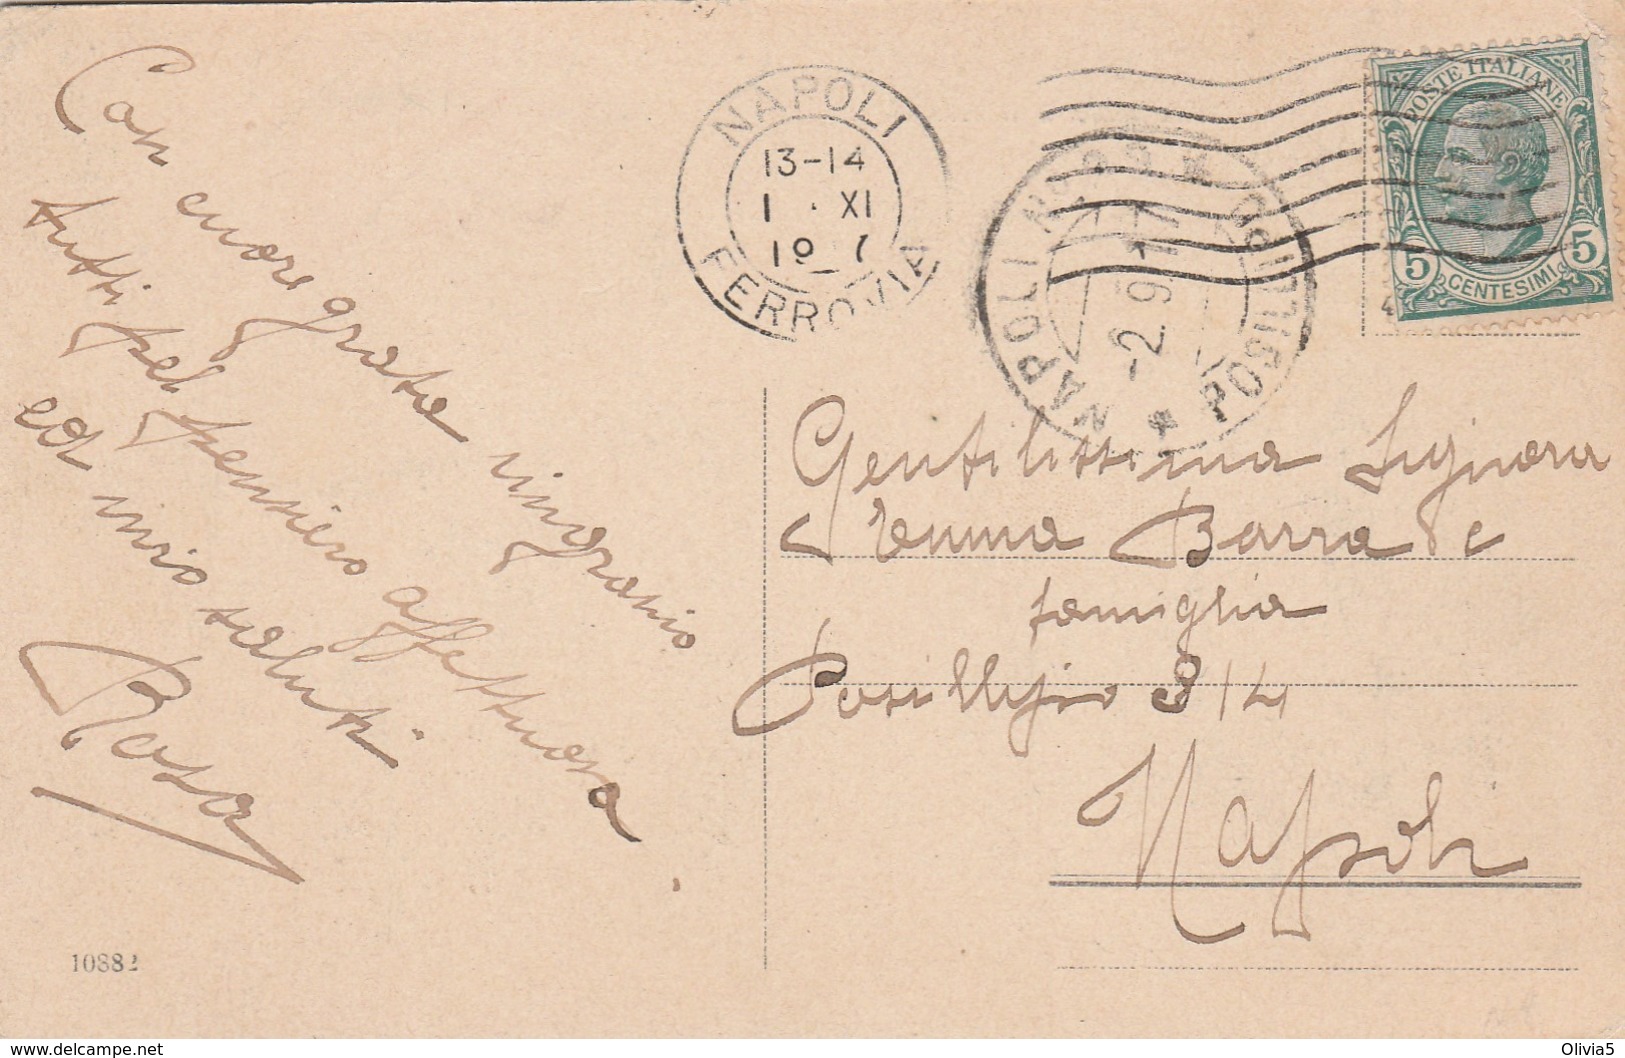 Con cuore grato ringrazio
tutti pel pensiero affettuoso
ed invio saluti
Rosa
10882
NAPOLI
13-14
1 XI
FERROVIA
NAPOLI
POSILLIPO
POSTE ITALIANE
5 CENTESIMI 5
Gentilissima Signora
Emma Barra e
famiglia
Posillipo 314
Napoli
delcampe.net
Olivia5